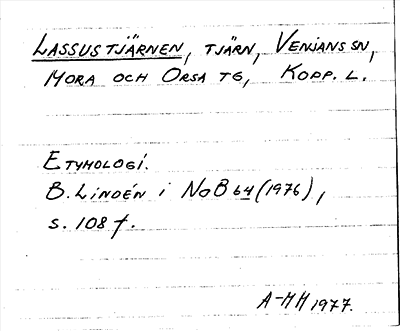 LASSUSTJÄRNEN, TJÄRN, VENJANS SN,
MORA OCH ORSA TG, KOPP. L.
ETYMOLOGI.
B. LINDÉN i NoB 64 (1976),
s. 108 f.
A-MH 1977.